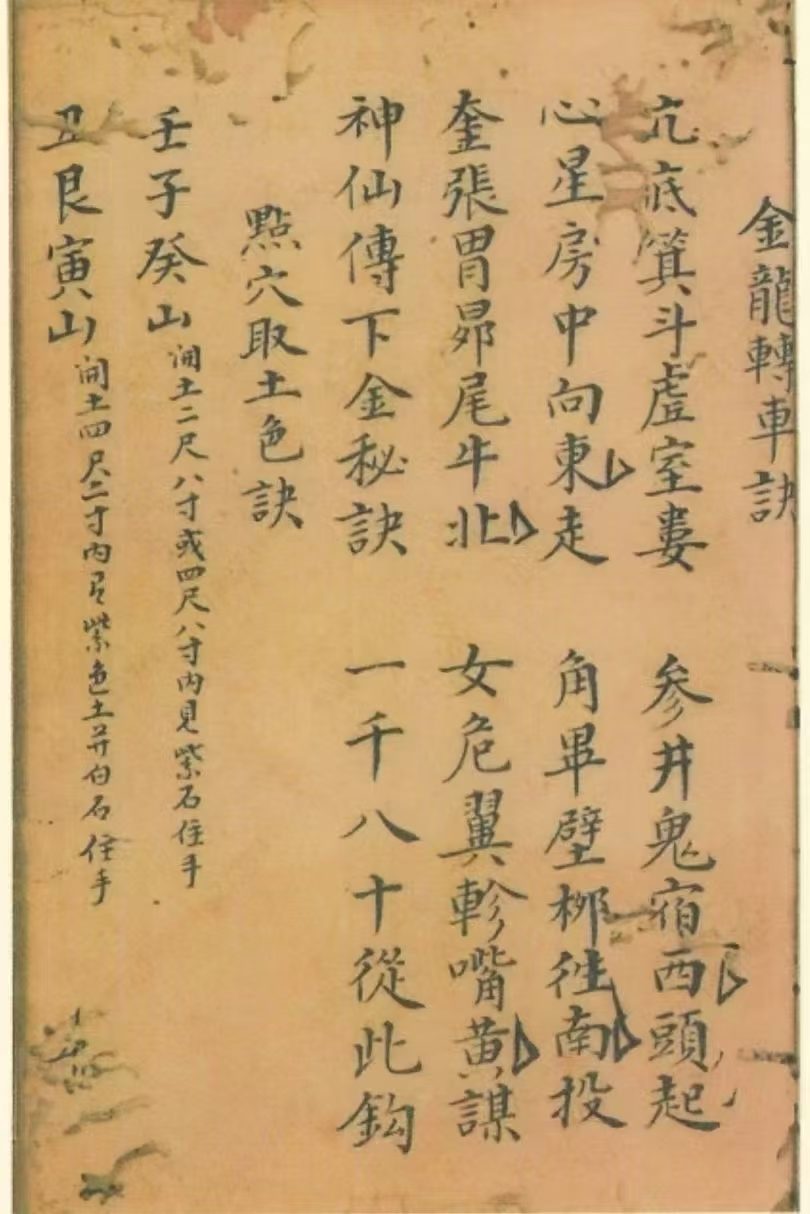 金龍轉車訣
亢底箕斗虛室婁 参井鬼宿西頭起
心星房中向東走 角畢壁栁徃南投
奎張胃昴尾牛北 女危翼軫嘴黃謀
神仙傳下金秘訣 一千八十從此鈎
點穴取土色訣
壬子癸山 開土二尺八寸或四尺八寸內見紫石住手
丑艮寅山 開土四尺二寸內有紫色土并白石住手